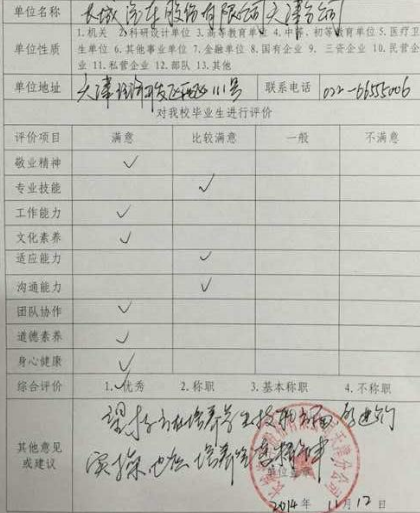 单位名称 长城汽车股份有限公司天津分公司
单位性质 1.机关 2.科研设计单位 3.高等教育单位 4.中等、初等教育单位 5.医疗卫
生单位 6.其他事业单位 7.金融单位 8.国有企业 9.三资企业 10.民营企
业 11.私营企业 12.部队 13.其他
单位地址 天津经济开发区 111号 联系电话 022-66555006
对我校毕业生进行评价
评价项目 满意 比较满意 一般 不满意
敬业精神 ✓
专业技能 ✓
工作能力 ✓
文化素养 ✓
适应能力 ✓
沟通能力 ✓
团队协作 ✓
道德素养 ✓
身心健康 ✓
综合评价 1.优秀 2.称职 3.基本称职 4.不称职
其他意见
或建议
望 在培养学生技 方面
实操 培养
单位
天津分公司
2014年 11月12日